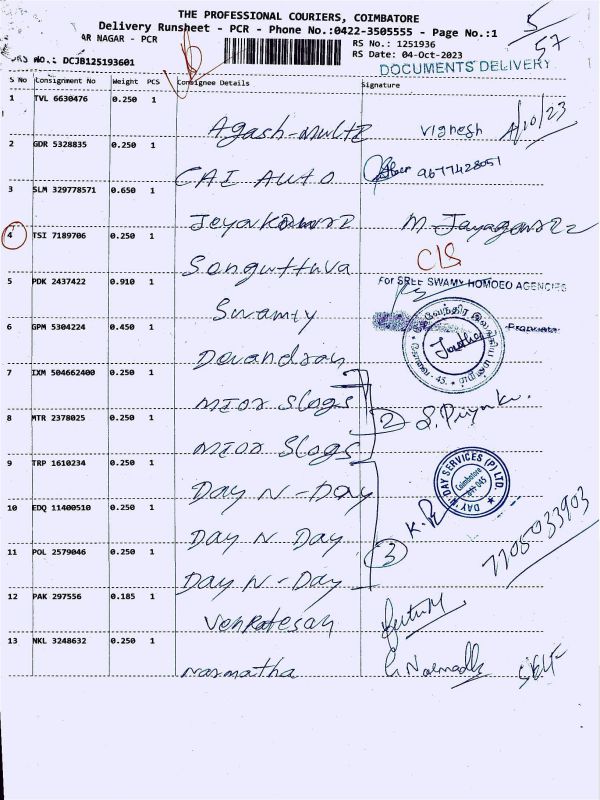 THE PROFESSIONAL COURIERS, COIMBATORE
Delivery Runsheet - PCR - Phone No.:0422-3505555 - Page No.:1
AR NAGAR - PCR
RS No.: 1251936
RS Date: 04-Oct-2023
5/57
DRS NO.: DCJB125193601
DOCUMENTS DELIVERY
S No Consignment No Weight PCS Consignee Details Signature
1 TVL 6630476 0.250 1 Agash-multi Vignesh 4/10/23
2 GDR 5328835 0.250 1 CAI Auto 9677428051
3 SLM 329778571 0.650 1 Jeyakumar M. Jayagowri
4 TSI 7189706 0.250 1 Songuttuva C/S
5 PDK 2437422 0.910 1 Swamy For SREE SWAMY HOMOEO AGENCIES
Proprietor
6 GPM 5304224 0.450 1 Devandran
7 IXM 504662400 0.250 1 mior slogs
2 S. Priyanka.
8 MTR 2378025 0.250 1 mior slogs
9 TRP 1610234 0.250 1 Day N-Day
DAY N DAY SERVICES (P) LTD.
Coimbatore
641 045
10 EDQ 11400510 0.250 1 Day N Day
3 7705033903
11 POL 2579046 0.250 1 Day N-Day
12 PAK 297556 0.185 1 Venkatesan
13 NKL 3248632 0.250 1 Narmatha G. Narmadha Self